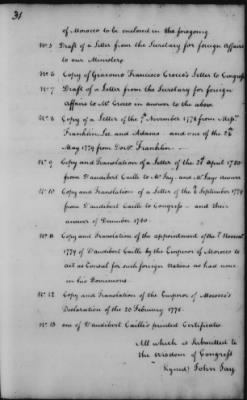 31
of Morocco to be enclosed in the foregoing
No. 5 Draft of a Letter from the Secretary for foreign Affairs
to our Ministers
No. 6 Copy of Giacomo Francisco Crocco's Letter to Congress
No. 7 Draft of a Letter from the Secretary for foreign
Affairs to Mr. Crocco in answer to the above
No. 8 Copy of a Letter of the 7th November 1778 from Messrs.
Franklin Lee and Adams - and one of the 26th
May 1779 from Doctr. Franklin
No. 9 Copy and Translation of a Letter of the 21st April 1780
from Daudibert Caille to Mr. Jay - and Mr. Jay's answer
No. 10 Copy and Translations of a Letter of the 6th September 1779
from Daudibert Caille to Congress - and their
answer of December 1780
No. 11 Copy and Translation of the appointment of the 1st November
1779 of Daudibert Caille by the Emperor of Morocco to
act as Consul for such foreign Nations as had none
in his Dominions
No. 12 Copy and Translation of the Emperor of Morocco's
Declaration of the 20 February 1778
No. 13 one of Daudibert Caille's printed Certificates
All which is submitted to
the wisdom of Congress
signed John Jay